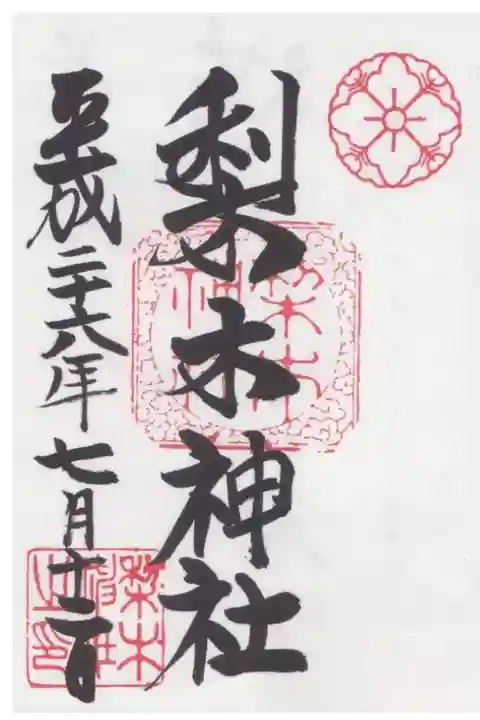 梨木神社
平成二十六年七月十二日
梨木神社
梨木神社之印